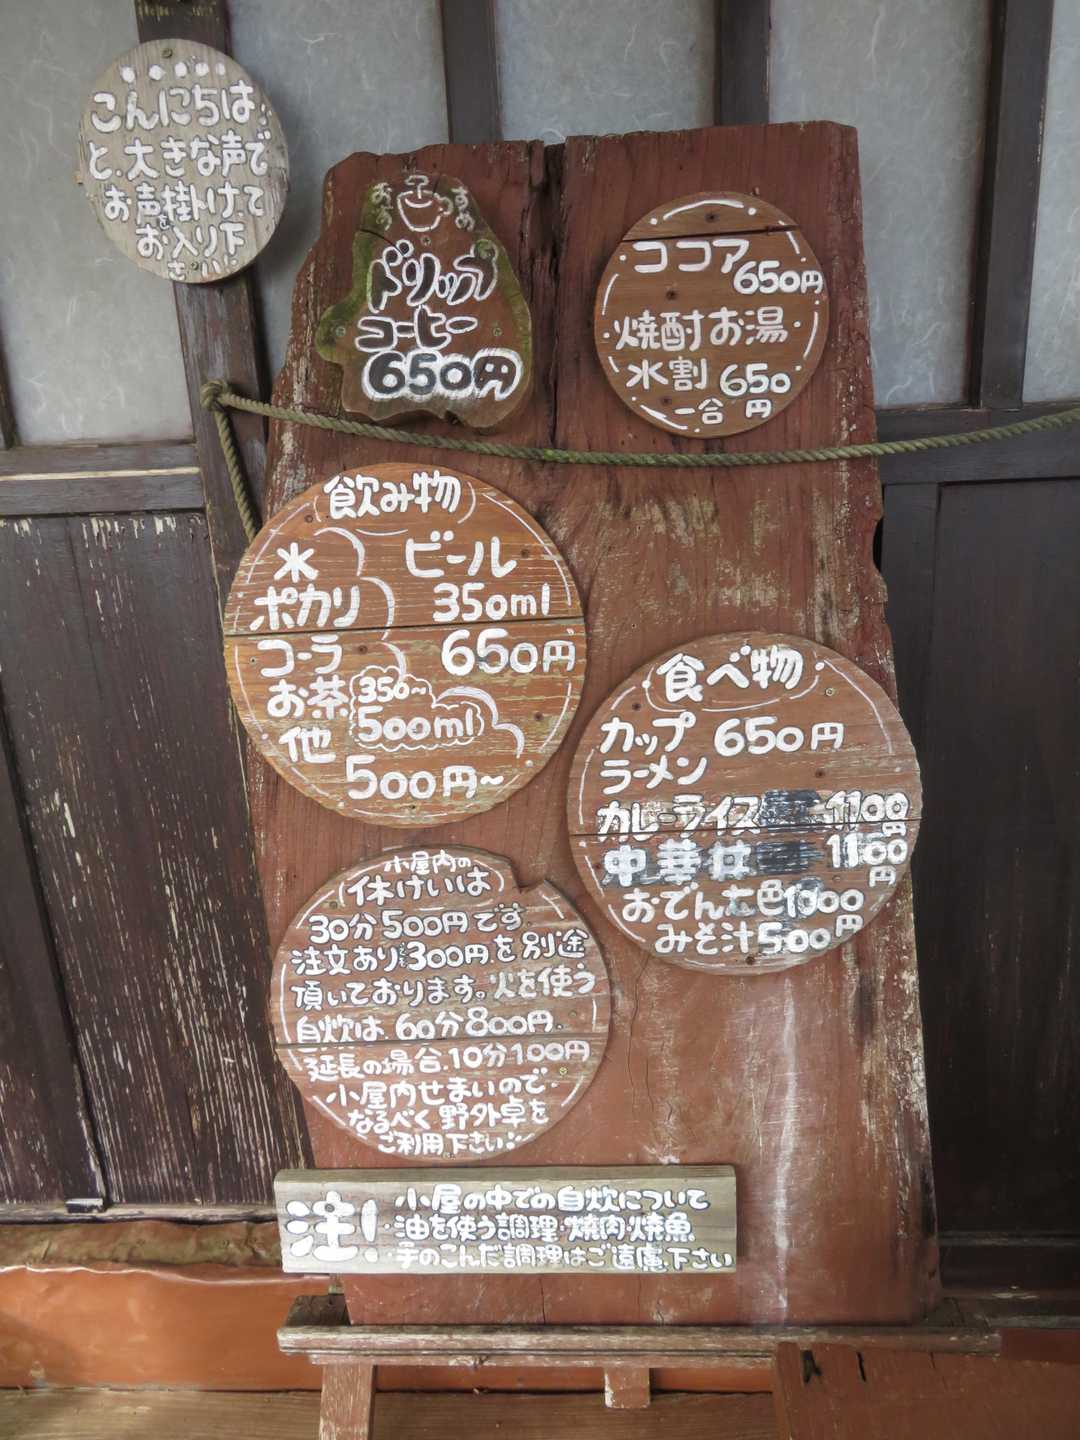 こんにちは
と、大きな声で
お声掛けを、て
お入り下
さい!
おすすめ
ドリップ
コーヒー
650円
ココア
650円
焼酎お湯
水割 650
一合 円
飲み物
水
ポカリ
コーラ
お茶
他
350~
500ml
500円~
ビール
350ml
650円
食べ物
カップ 650円
ラーメン
カレーライス 1100
円
中華丼 1100
円
おでん七色1000
円
みそ汁500
小屋内の
休けいは
30分500円です
注文あり300円を別途
頂いております。火を使う
自炊は 60分800円。
延長の場合、10分100円
小屋内せまいので
なるべく野外卓を
ご利用下さい
注!
小屋の中での自炊について
・油を使う調理・焼肉・焼魚
・手のこんだ調理はご遠慮、下さい